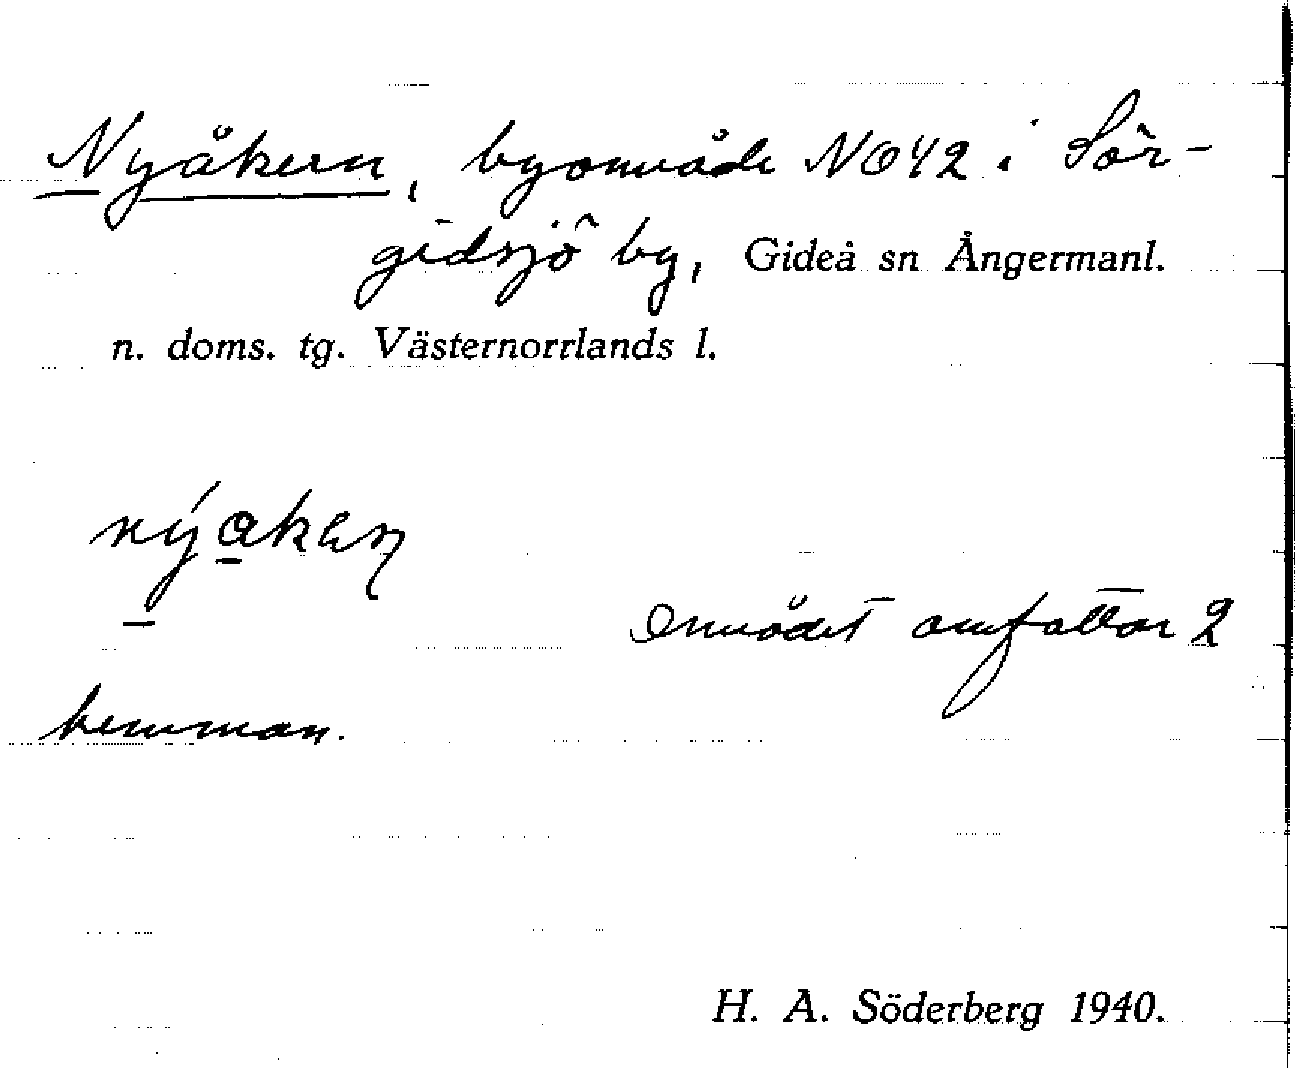 Nyåkern, byområde NO42 i Sör-
gidsjö by, Gideå sn Ångermanl.
n. doms. tg. Västernorrlands l.
nýa̠ken
Området omfattar 2
hemman.
H. A. Söderberg 1940.